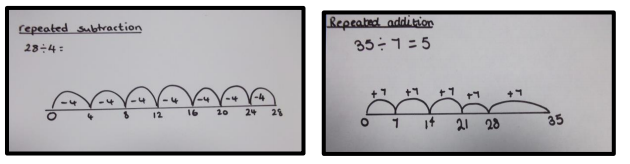 repeated subtraction
28÷4=
-4 -4 -4 -4 -4 -4 -4
0 4 8 12 16 20 24 28
Repeated addition
35÷7=5
+7 +7 +7 +7 +7
0 7 14 21 28 35